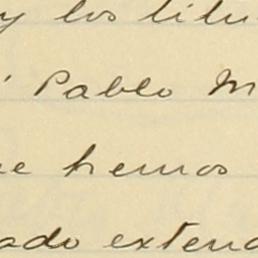 y los títu
Pablo M
e hemos
ado exten